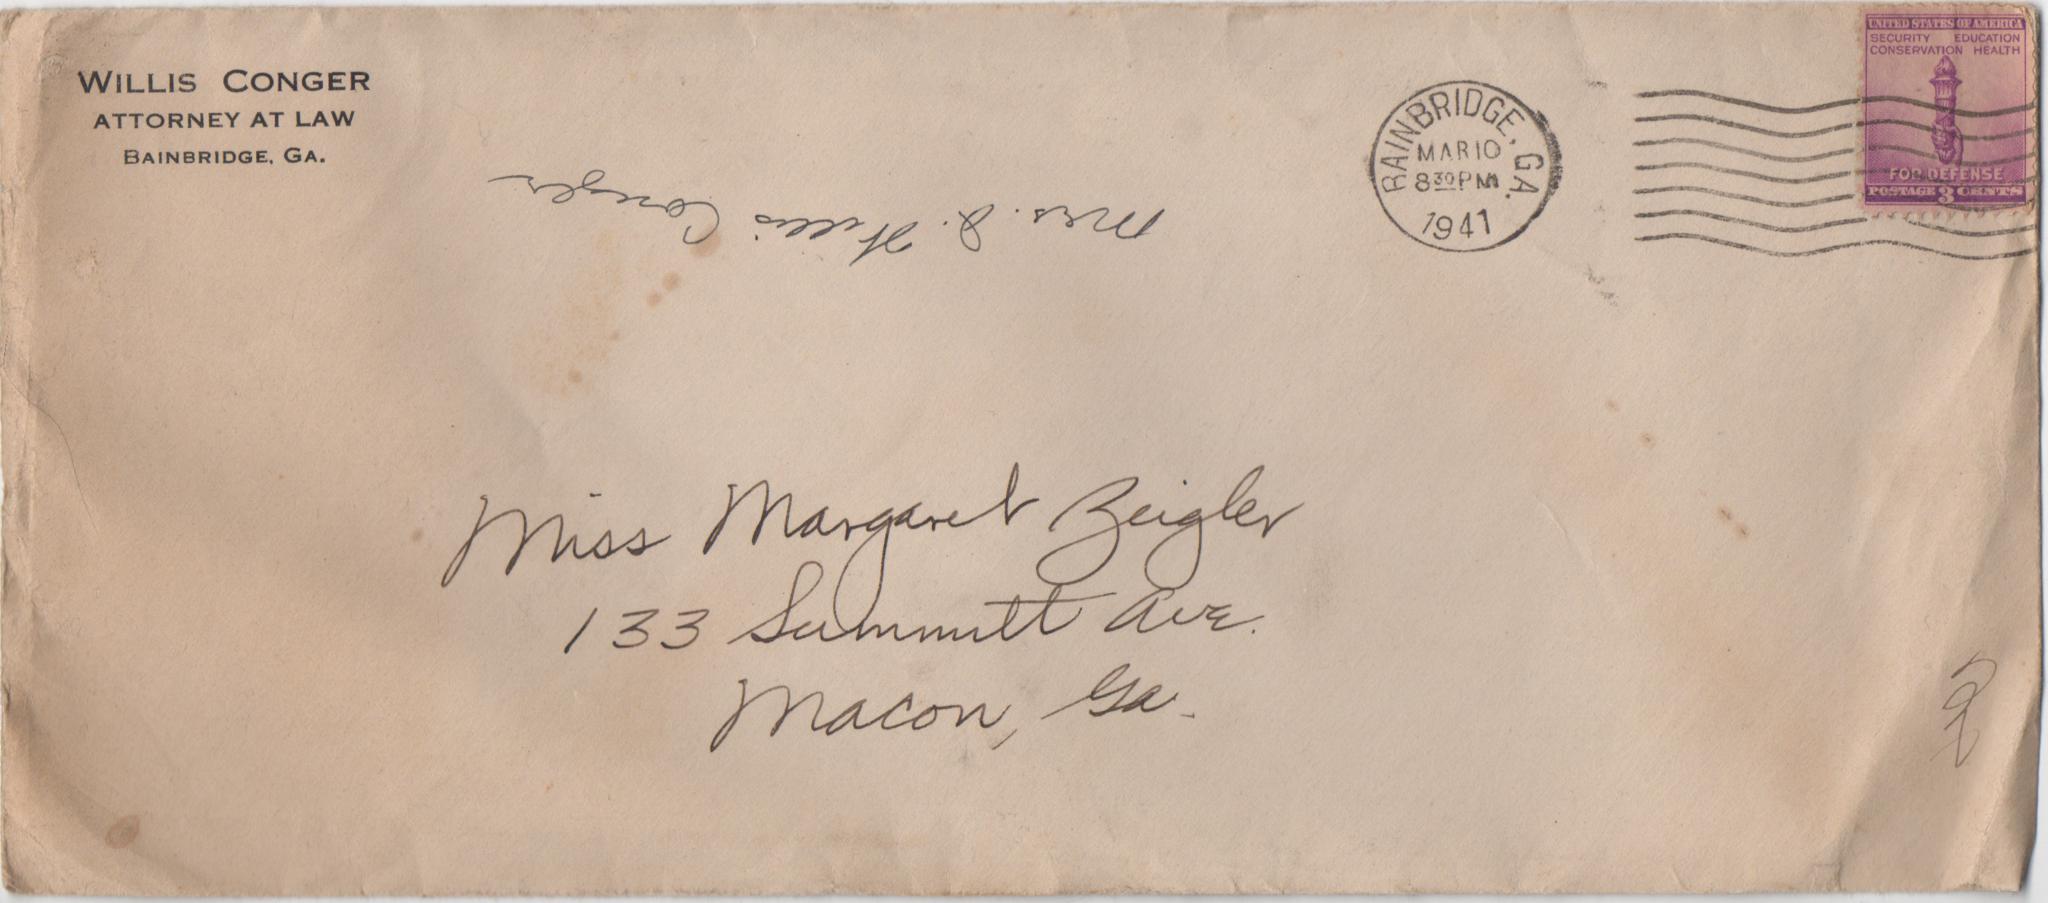 WILLIS CONGER
ATTORNEY AT LAW
BAINBRIDGE, GA.
Mrs. J. Willis Conger
BAINBRIDGE, GA.
MAR 10
8 30 PM
1941
UNITED STATES OF AMERICA
SECURITY EDUCATION
CONSERVATION HEALTH
FOR DEFENSE
POSTAGE 3 CENTS
Miss Margaret Zeigler
133 Summitt Ave.
Macon, Ga.